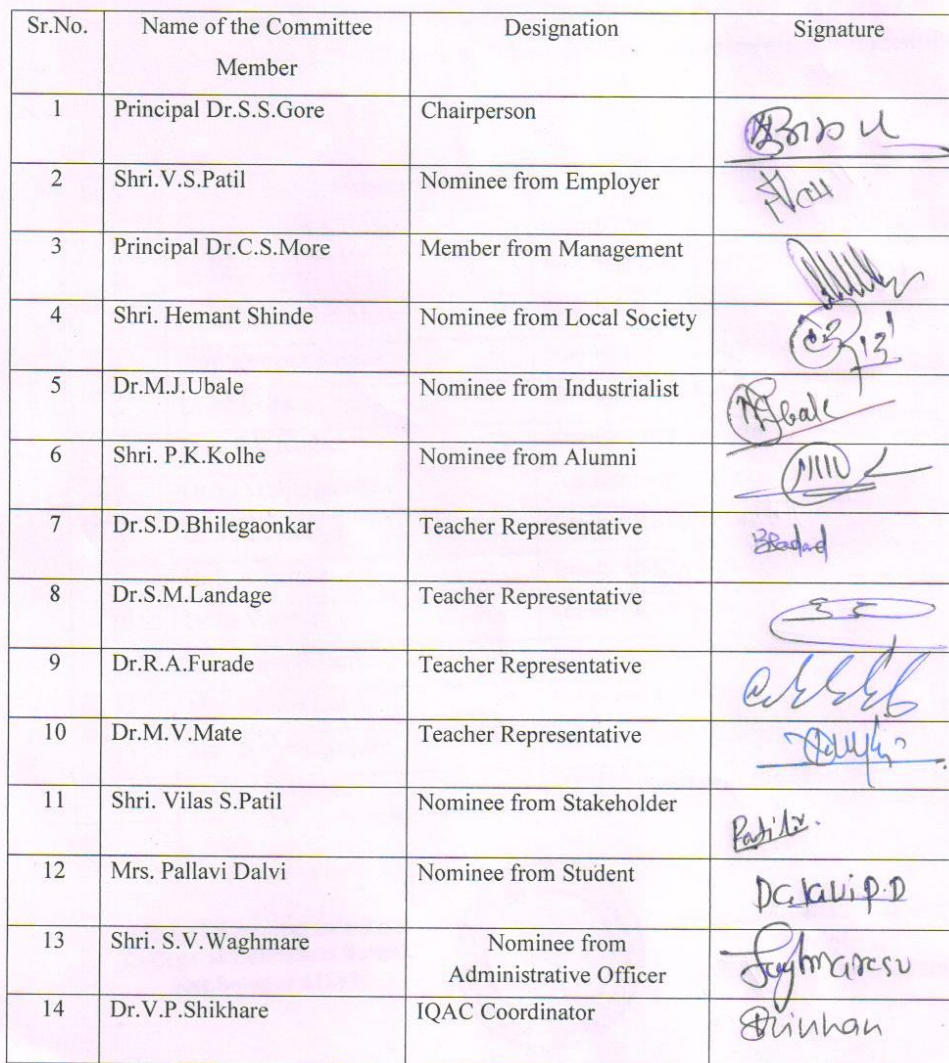 Sr.No. Name of the Committee Member Designation Signature
1 Principal Dr.S.S.Gore Chairperson
2 Shri.V.S.Patil Nominee from Employer
3 Principal Dr.C.S.More Member from Management
4 Shri. Hemant Shinde Nominee from Local Society
5 Dr.M.J.Ubale Nominee from Industrialist
6 Shri. P.K.Kolhe Nominee from Alumni
7 Dr.S.D.Bhilegaonkar Teacher Representative
8 Dr.S.M.Landage Teacher Representative
9 Dr.R.A.Furade Teacher Representative
10 Dr.M.V.Mate Teacher Representative
11 Shri. Vilas S.Patil Nominee from Stakeholder
12 Mrs. Pallavi Dalvi Nominee from Student Dalavi P.D
13 Shri. S.V.Waghmare Nominee from
Administrative Officer
14 Dr.V.P.Shikhare IQAC Coordinator